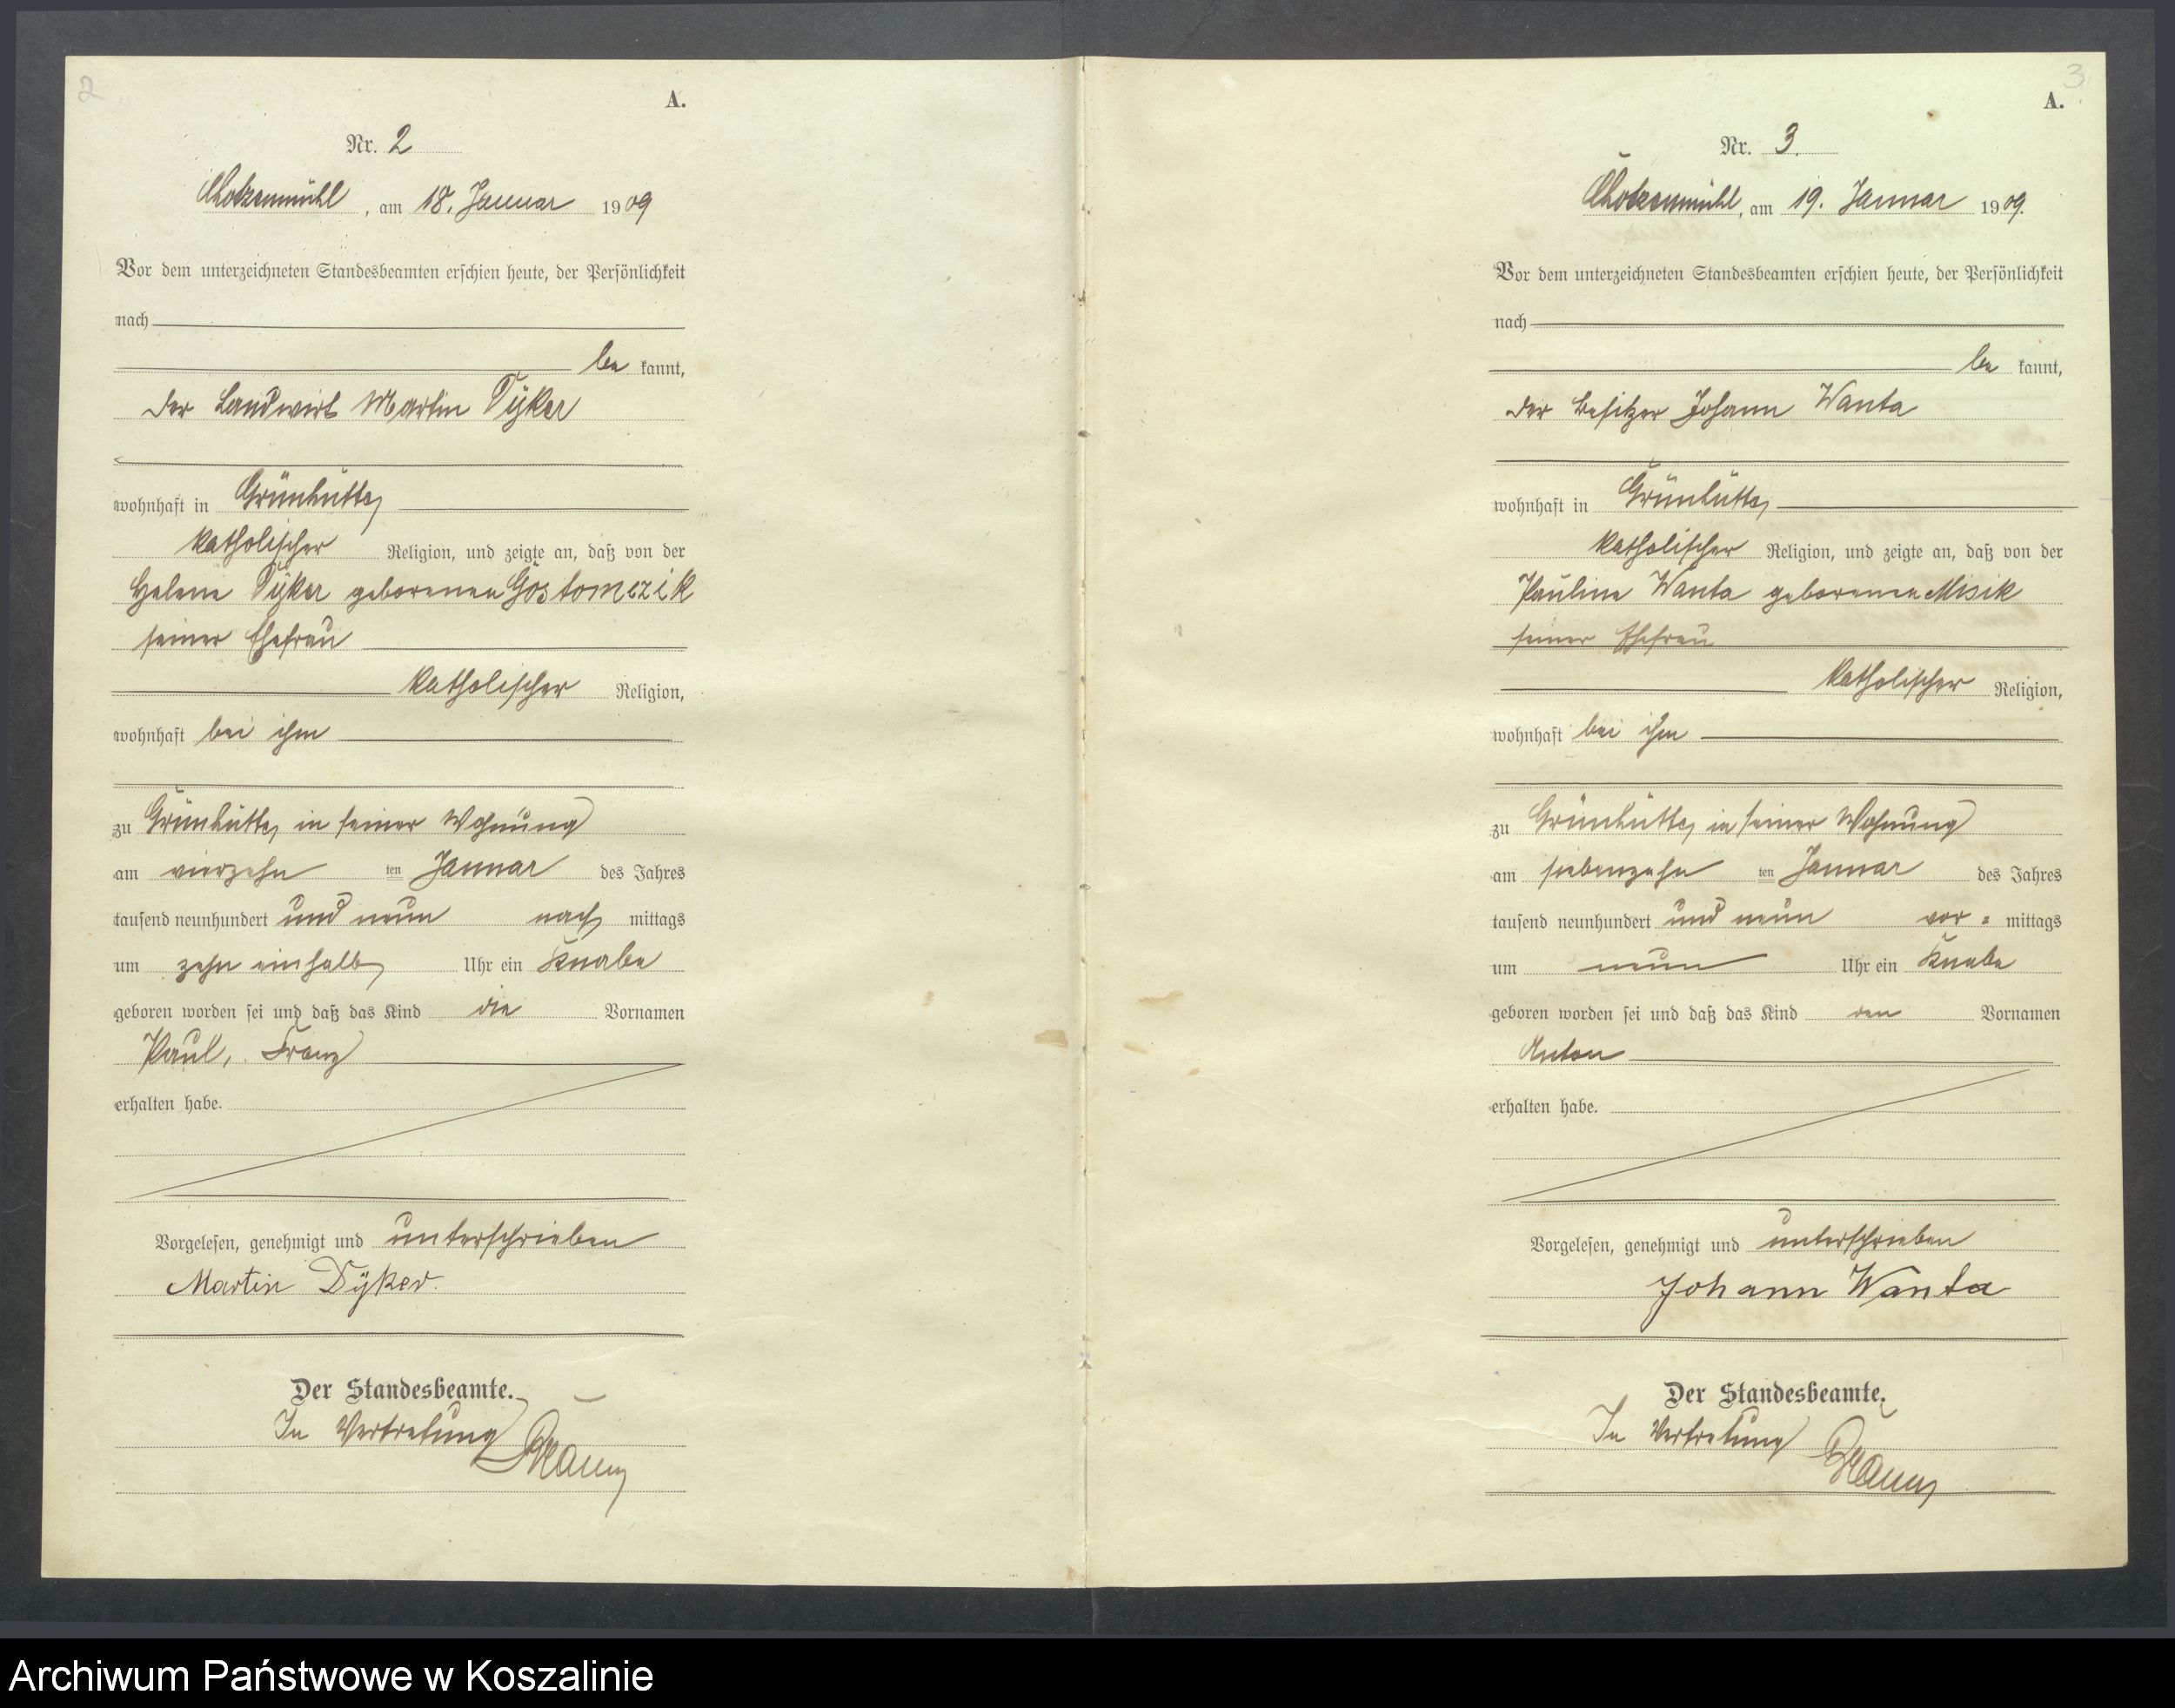 2
A.
Nr. 2
Chotzenmühl, am 18. Januar 1909
Vor dem unterzeichneten Standesbeamten erschien heute, der Persönlichkeit
nach
be kannt,
der Landwirt Martin Dÿker
wohnhaft in Grünhütte,
katholischer Religion, und zeigte an, daß von der
Helene Dÿker geborenen Gostomczik
seiner Ehefrau
katholischer Religion,
wohnhaft bei ihm
zu Grünhütte, in seiner Wohnung
am vierzehn ten Januar des Jahres
tausend neunhundert und neun nach mittags
um zehn einhalb Uhr ein Knabe
geboren worden sei und daß das Kind die Vornamen
Paul, Franz
erhalten habe.
Vorgelesen, genehmigt und unterschrieben
Martin Dÿker.
Der Standesbeamte.
In Vertretung
3
A.
Nr. 3.
Chotzenmühl, am 19. Januar 1909.
Vor dem unterzeichneten Standesbeamten erschien heute, der Persönlichkeit
nach
be kannt,
der Besitzer Johann Wanta
wohnhaft in Grünhütte,
katholischer Religion, und zeigte an, daß von der
Pauline Wanta geborenen Misik
seiner Ehefrau
katholischer Religion,
wohnhaft bei ihm
zu Grünhütte, in seiner Wohnung
am siebenzehn ten Januar des Jahres
tausend neunhundert und neun vor = mittags
um neun Uhr ein Knabe
geboren worden sei und daß das Kind den Vornamen
Anton
erhalten habe.
Vorgelesen, genehmigt und unterschrieben
Johann Wanta
Der Standesbeamte.
In Vertretung
Archiwum Państwowe w Koszalinie